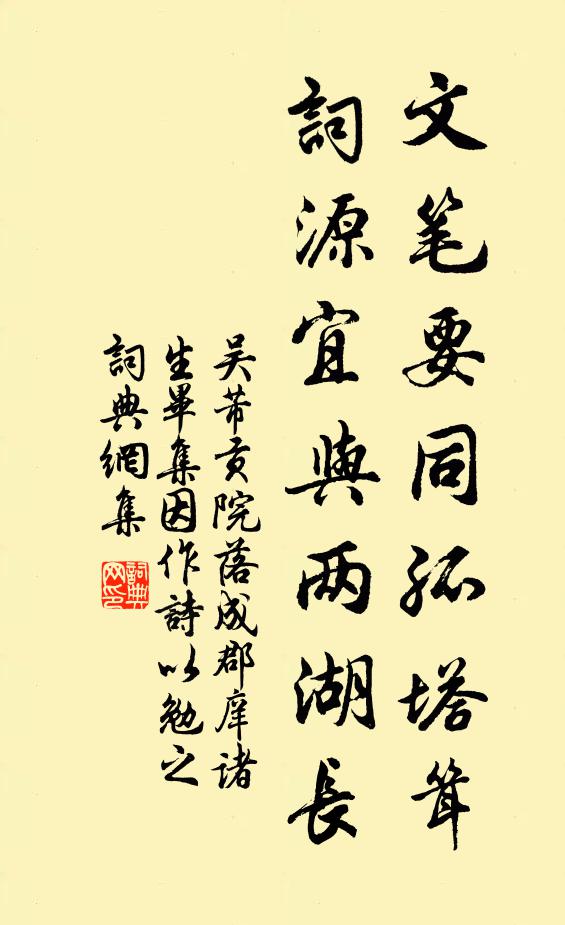 文笔要同孤塔耸
詞源宜與两湖長
吴芾贡院落成郡庠诸
生畢集因作詩以勉之
詞典網集
詞典
网印